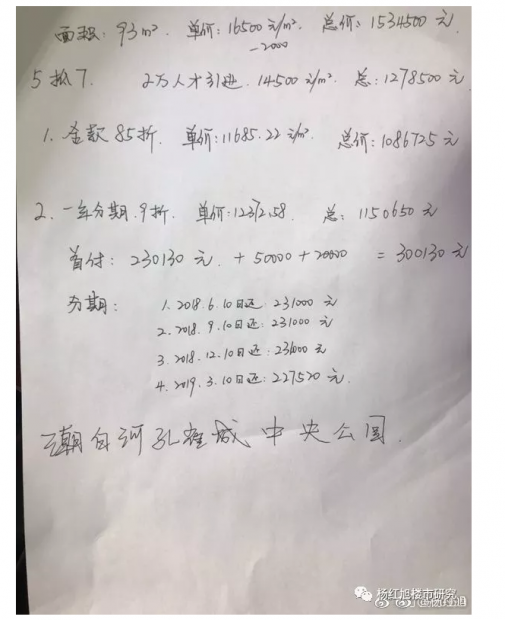 面积: 93m². 单价: 16500元/m². 总价: 1534500元
-2000
5抵7. 2万人才引进. 14500元/m². 总: 1278500元
1. 全款85折. 单价: 11685.22元/m². 总价: 1086725元
2. 一年分期.9折. 单价: 12372.58. 总: 1150650元
首付: 230130元. + 50000 + 20000 = 300130元
分期: 1. 2018.6.10日还. 231000元
2. 2018.9.10日还: 231000元
3. 2018.12.10日还: 231000元
4. 2019.3.10日还: 227520元.
潮白河孔雀城中央公园.
杨红旭楼市研究
@杨红旭